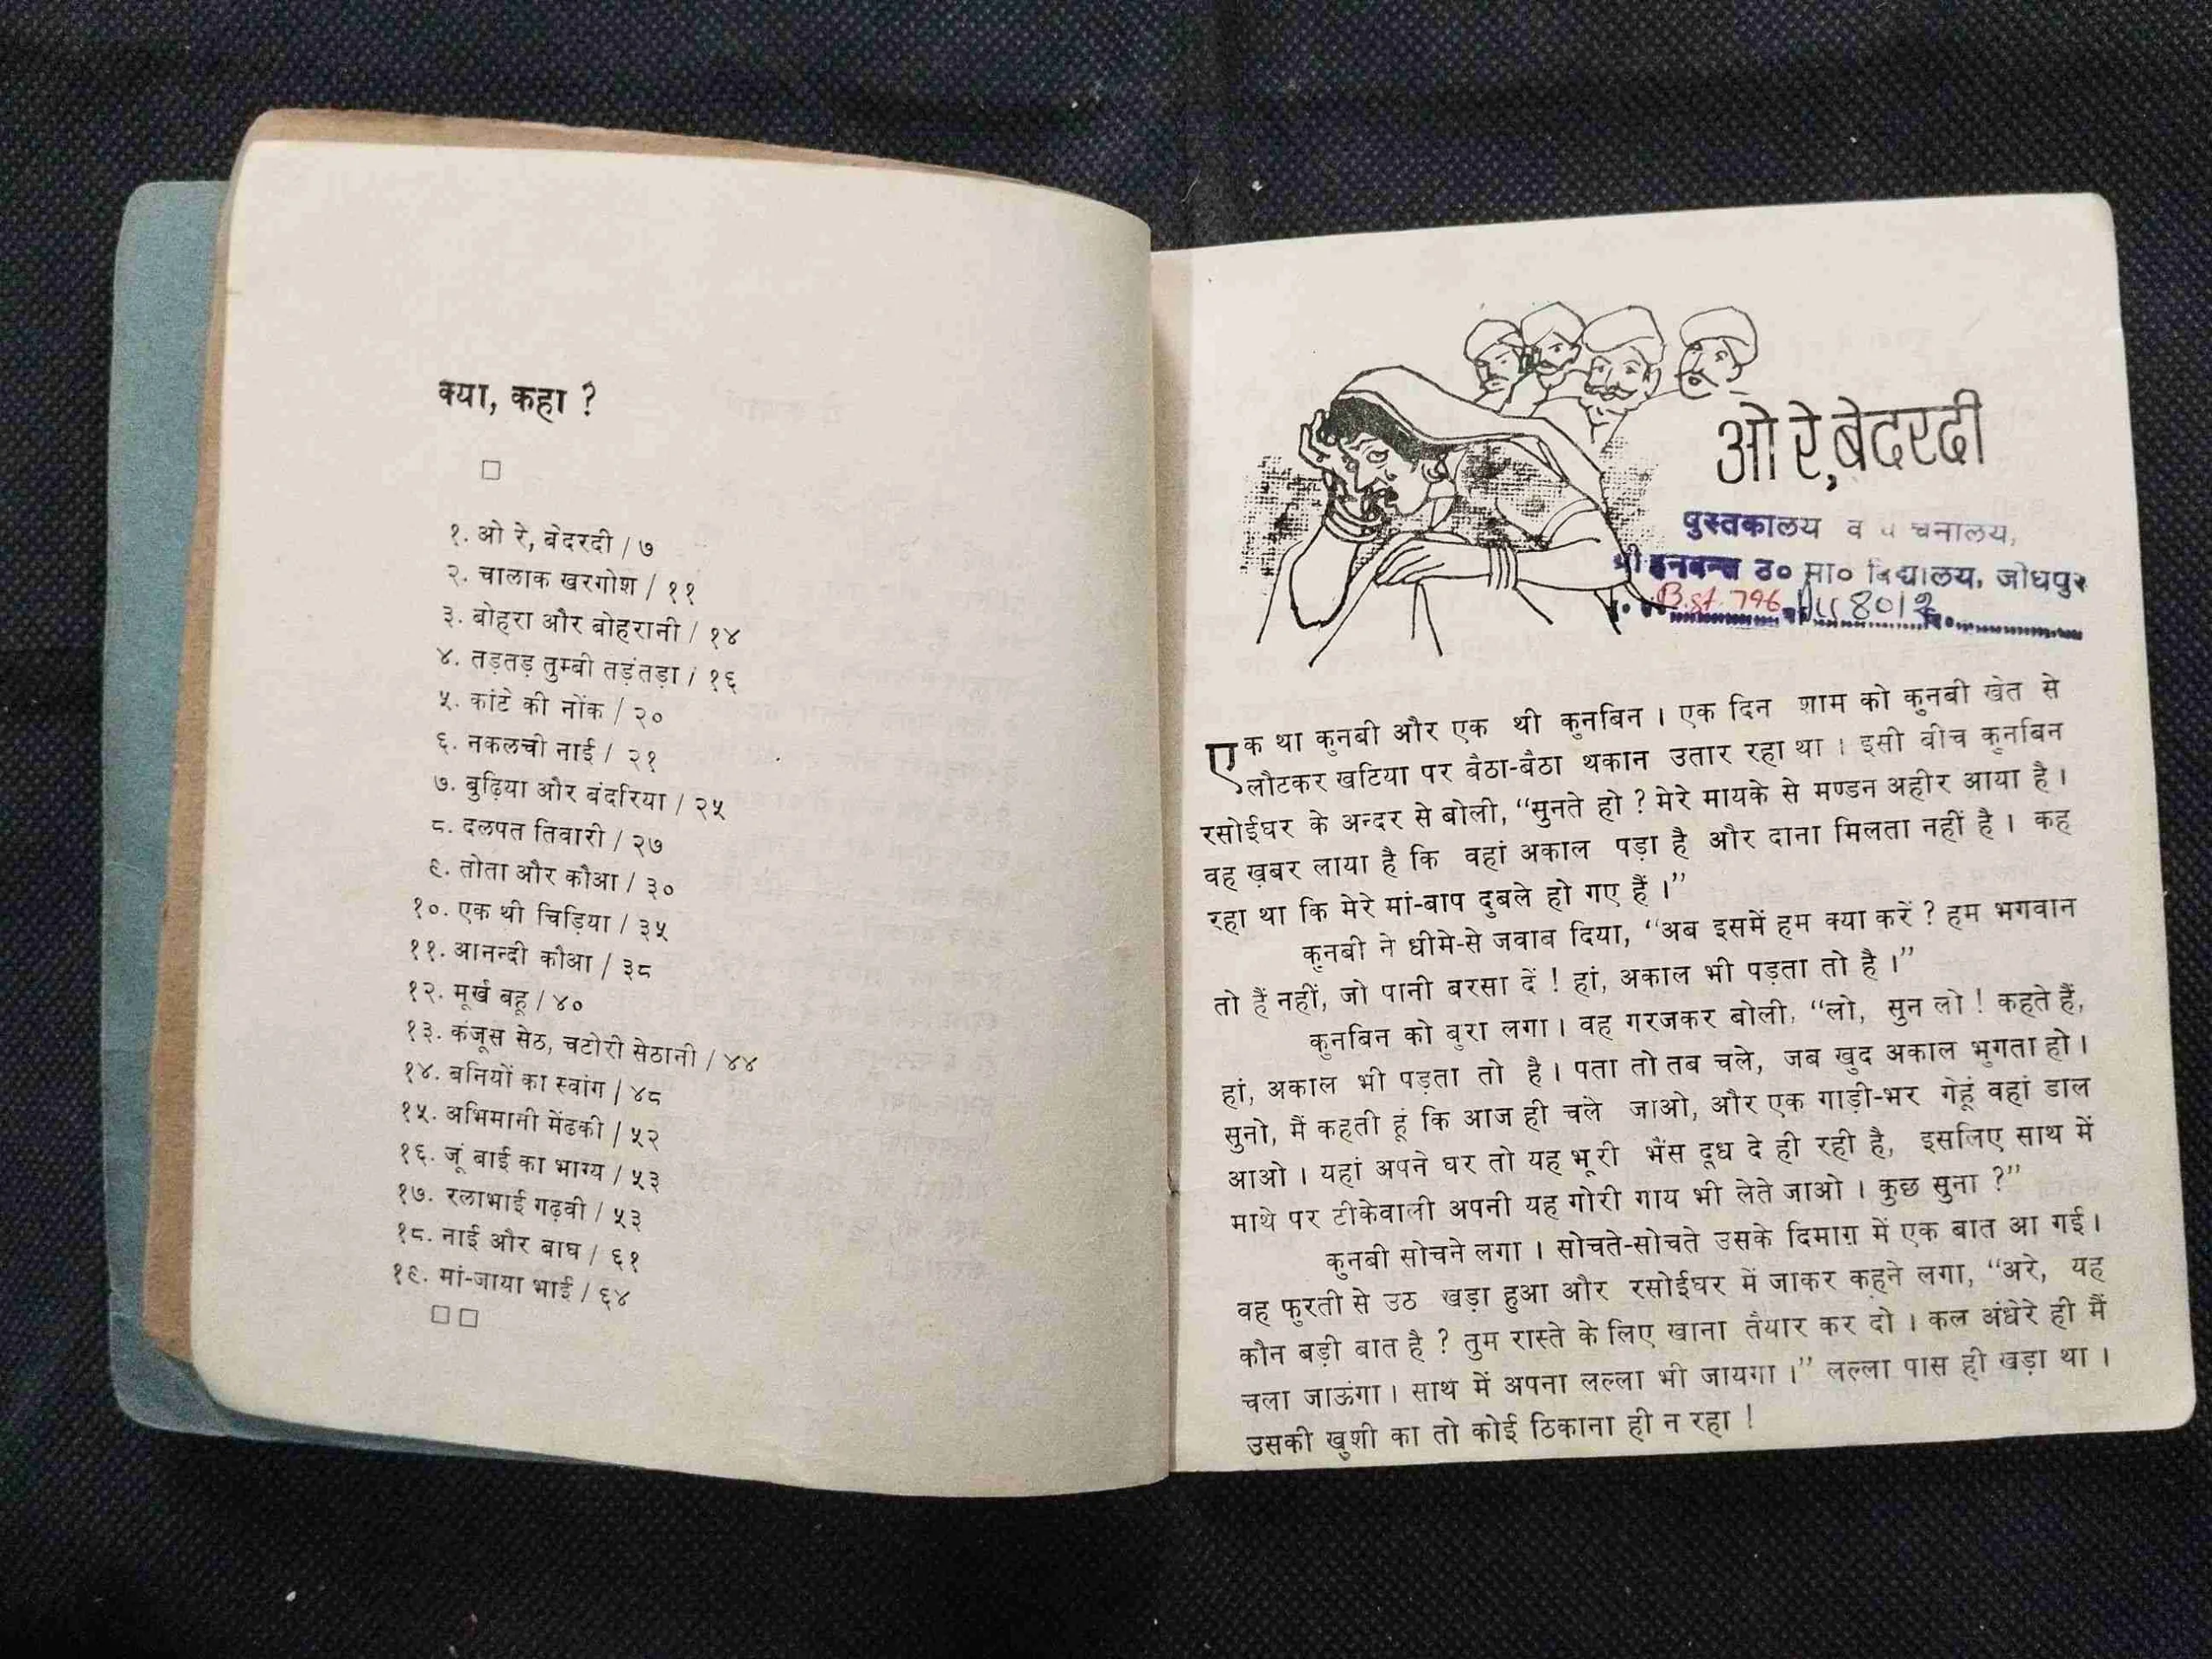 क्या, कहा ?
१. ओ रे, बेदरदी / ७
२. चालाक खरगोश / ११
३. बोहरा और बोहरानी / १४
४. तड़तड़ तुम्बी तड़ंतड़ा / १६
५. कांटे की नोंक / २०
६. नकलची नाई / २१
७. बुढ़िया और बंदरिया / २५
८. दलपत तिवारी / २७
९. तोता और कौआ / ३०
१०. एक थी चिड़िया / ३५
११. आनन्दी कौआ / ३८
१२. मूर्ख बहू / ४०
१३. कंजूस सेठ, चटोरी सेठानी / ४४
१४. बनियों का स्वांग / ४८
१५. अभिमानी मेंढकी / ५२
१६. जूं बाई का भाग्य / ५३
१७. रलाभाई गढ़वी / ५३
१८. नाई और बाघ / ६१
१९. मां-जाया भाई / ६४
ओ रे, बेदरदी
पुस्तकालय व चनालय,
श्री हनवन्त उ० मा० विद्यालय, जोधपुर
796 8012
एक था कुनबी और एक थी कुनबिन । एक दिन शाम को कुनबी खेत से
लौटकर खटिया पर बैठा-बैठा थकान उतार रहा था । इसी बीच कुनबिन
रसोईघर के अन्दर से बोली, “सुनते हो ? मेरे मायके से मण्डन अहीर आया है ।
वह ख़बर लाया है कि वहां अकाल पड़ा है और दाना मिलता नहीं है । कह
रहा था कि मेरे मां-बाप दुबले हो गए हैं ।”
कुनबी ने धीमे-से जवाब दिया, “अब इसमें हम क्या करें ? हम भगवान
तो हैं नहीं, जो पानी बरसा दें ! हां, अकाल भी पड़ता तो है ।”
कुनबिन को बुरा लगा । वह गरजकर बोली, “लो, सुन लो ! कहते हैं,
हां, अकाल भी पड़ता तो है । पता तो तब चले, जब खुद अकाल भुगता हो ।
सुनो, मैं कहती हूं कि आज ही चले जाओ, और एक गाड़ी-भर गेहूं वहां डाल
आओ । यहां अपने घर तो यह भूरी भैंस दूध दे ही रही है, इसलिए साथ में
माथे पर टीकेवाली अपनी यह गोरी गाय भी लेते जाओ । कुछ सुना ?”
कुनबी सोचने लगा । सोचते-सोचते उसके दिमाग़ में एक बात आ गई ।
वह फुरती से उठ खड़ा हुआ और रसोईघर में जाकर कहने लगा, “अरे, यह
कौन बड़ी बात है ? तुम रास्ते के लिए खाना तैयार कर दो । कल अंधेरे ही मैं
चला जाऊंगा । साथ में अपना लल्ला भी जायगा ।” लल्ला पास ही खड़ा था ।
उसकी खुशी का तो कोई ठिकाना ही न रहा !